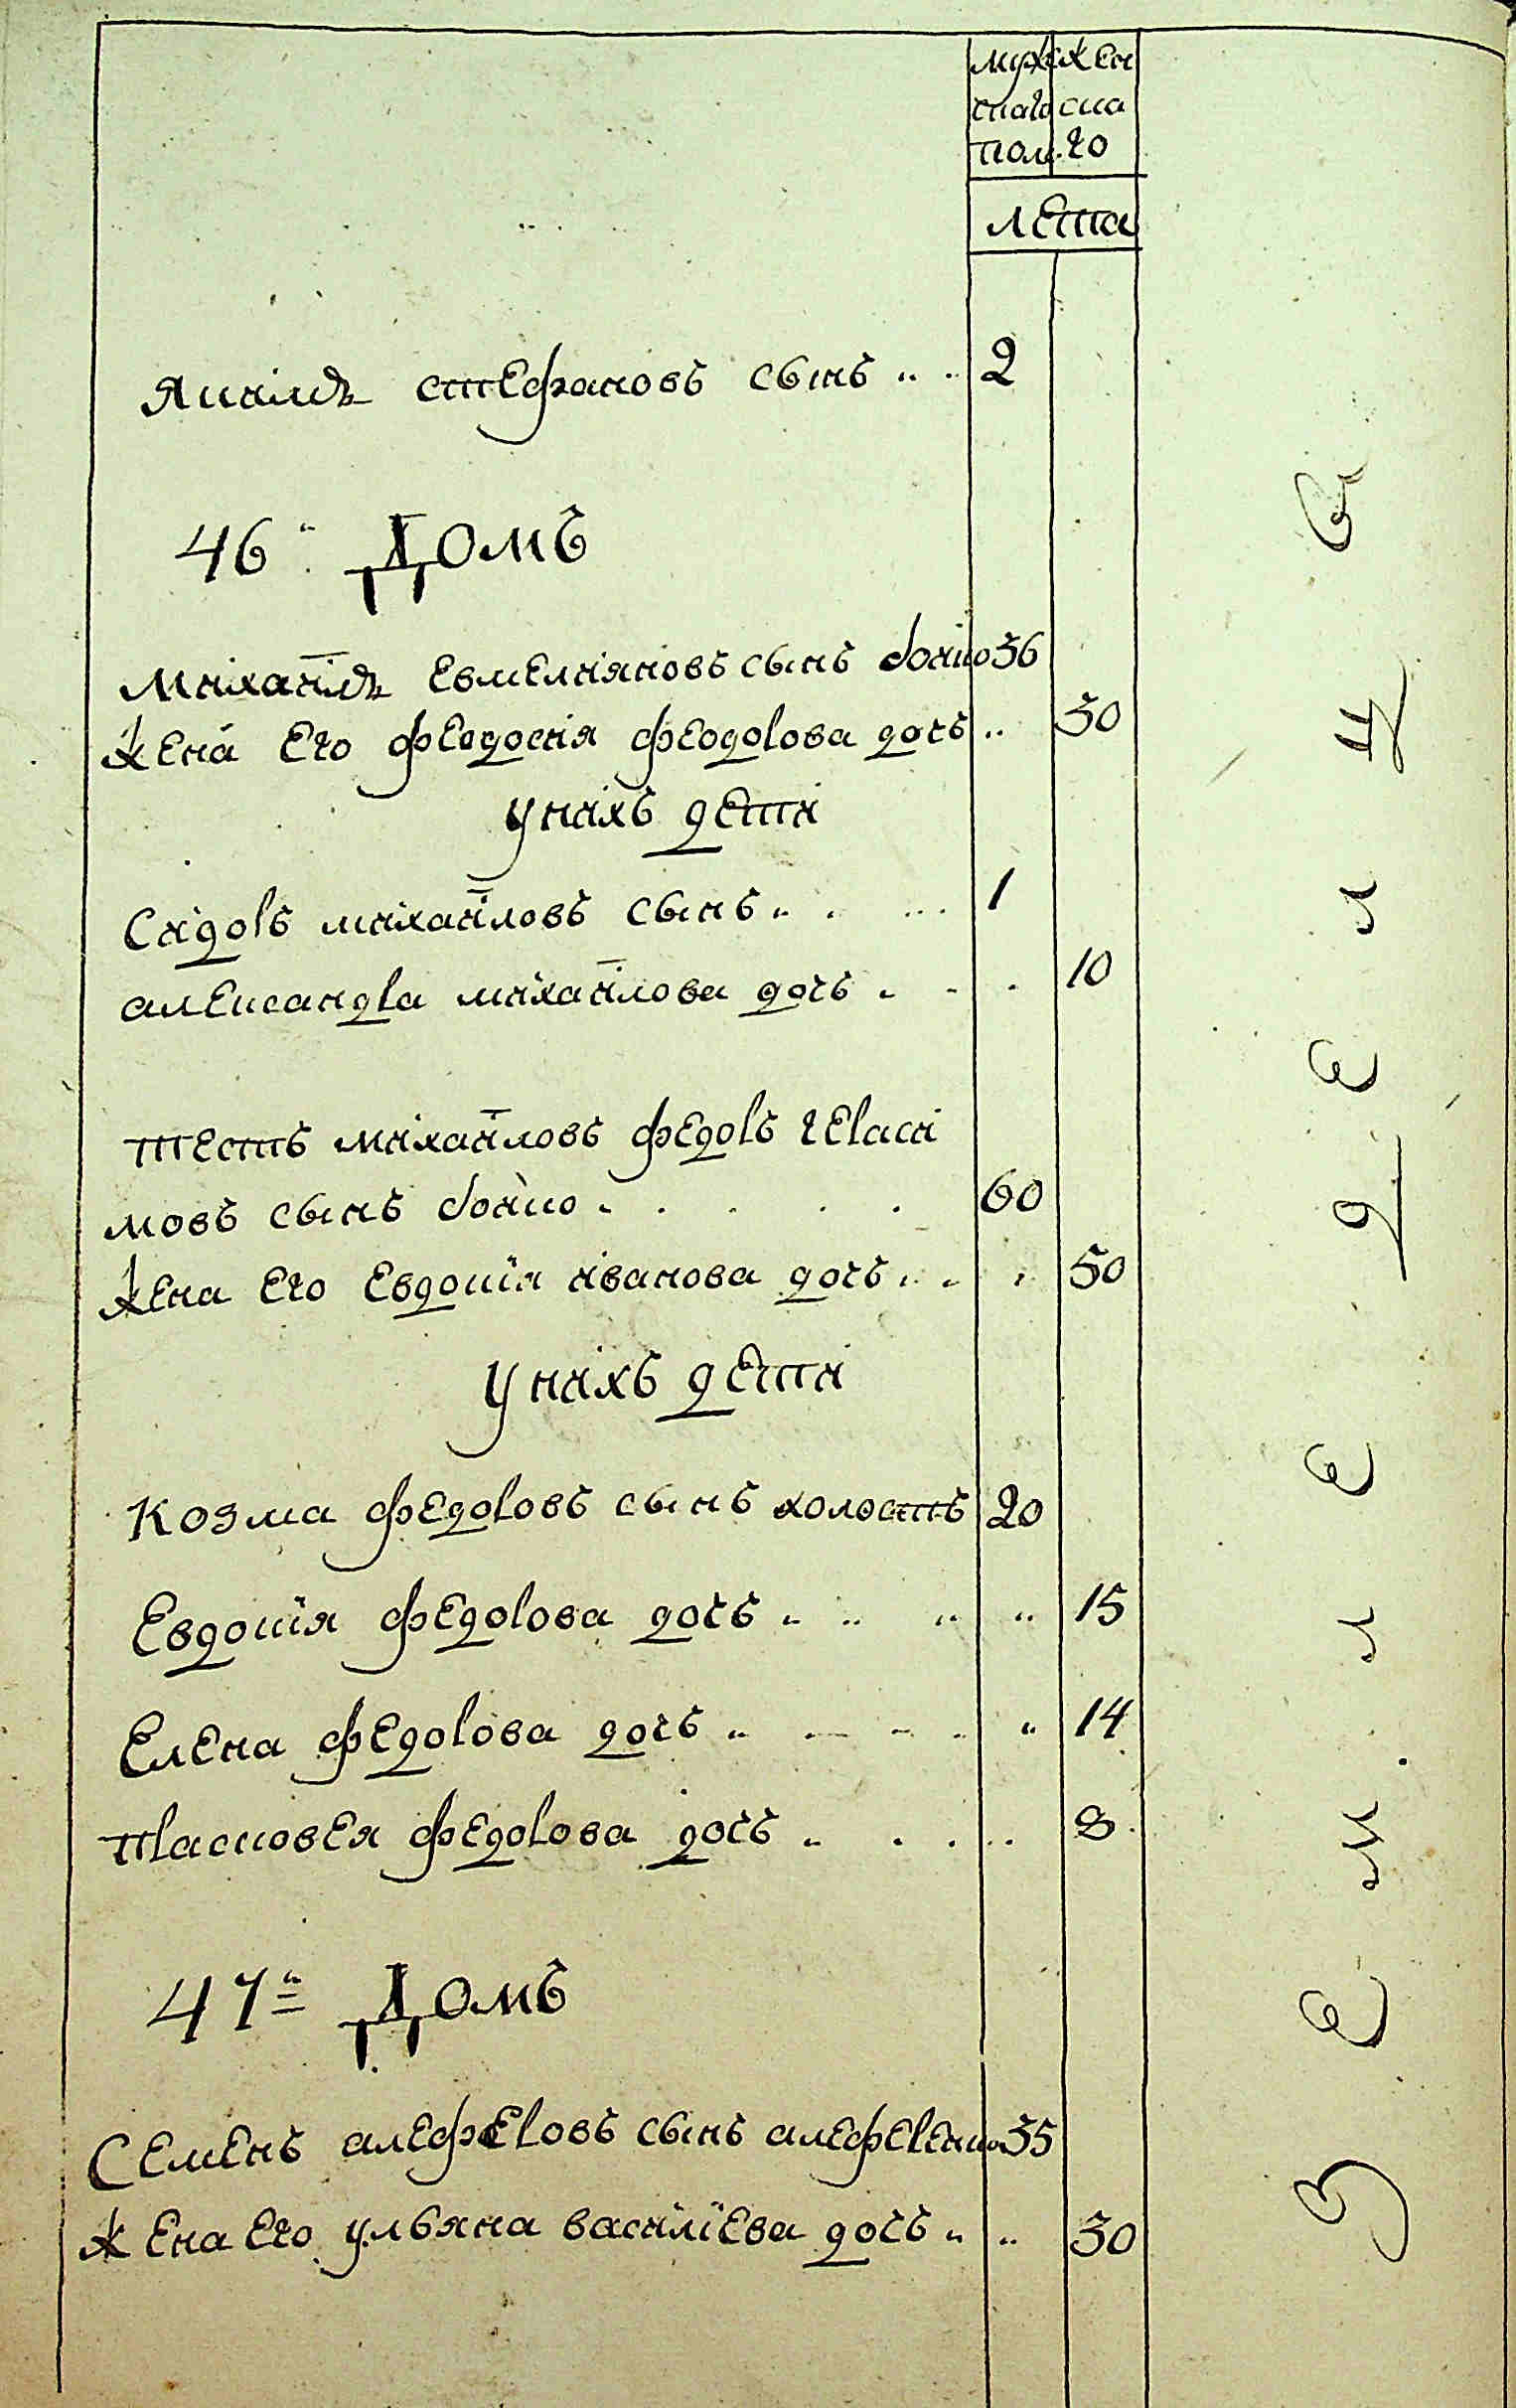 мужс жен
скаго ска
пол. го
лета
Якимъ стефановъ сынъ 2
46й домъ
михаилъ емелияновъ сынъ бойко 36
жена его феодосия феодорова дочъ 30
у нихъ дети
Сидоръ михаиловъ сынъ 1
александра михаилова дочъ 10
тесть михаиловъ федоръ гераси
мовъ сынъ бойко 60
жена его евдокiя иванова дочъ 50
у нихъ дети
козма федоровъ сынъ холостъ 20
Евдокiя федорова дочъ 15
Елена федорова дочъ 14
Прасковея федорова дочъ 8
47й домъ
Семенъ алеферовъ сынъ алеференко 35
жена его ульяна василiева дочъ 30